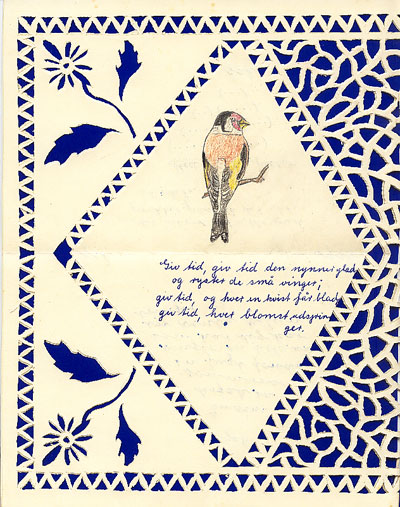 Giv tid, giv tid den nynner glad
og ryster de små vinger;
giv tid, og hver en kvist får blad
giv tid, hver blomst udsprin
ger.